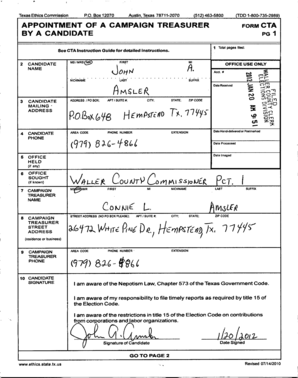 Texas Ethics Commission P.O. Box 12070 Austin, Texas 78711-2070 (512) 463-5800 (TDD 1-800-735-2989)
APPOINTMENT OF A CAMPAIGN TREASURER BY A CANDIDATE
FORM CTA
PG 1
See CTA Instruction Guide for detailed instructions.
1 Total pages filed:
2 CANDIDATE NAME
MS / MRS / MR FIRST MI
JOHN A.
NICKNAME LAST SUFFIX
AMSLER
OFFICE USE ONLY
Acct. #
Date Received
FILED CLERK
ELECTIONS DIVISION
2012 JAN 20 AM 9 51
3 CANDIDATE MAILING ADDRESS
ADDRESS / PO BOX; APT / SUITE #; CITY; STATE; ZIP CODE
P.O. Box 648 HEMPSTEAD TX. 77445
4 CANDIDATE PHONE
AREA CODE PHONE NUMBER EXTENSION
(979) 826-4866
Date Hand-delivered or Postmarked
Date Processed
Date Imaged
5 OFFICE HELD (if any)
6 OFFICE SOUGHT (if known)
WALLER COUNTY COMMISSIONER PCT. 1
7 CAMPAIGN TREASURER NAME
FIRST MI NICKNAME LAST SUFFIX
CONNIE L. AMSLER
8 CAMPAIGN TREASURER STREET ADDRESS (residence or business)
STREET ADDRESS (NO PO BOX PLEASE); APT / SUITE #; CITY; STATE; ZIP CODE
26472 WHITE PINE DR., HEMPSTEAD, TX. 77445
9 CAMPAIGN TREASURER PHONE
AREA CODE PHONE NUMBER EXTENSION
(979) 826-4866
10 CANDIDATE SIGNATURE
I am aware of the Nepotism Law, Chapter 573 of the Texas Government Code.
I am aware of my responsibility to file timely reports as required by title 15 of the Election Code.
I am aware of the restrictions in title 15 of the Election Code on contributions from corporations and labor organizations.
John A. Amsler 1/20/2012
Signature of Candidate Date Signed
GO TO PAGE 2
www.ethics.state.tx.us Revised 07/14/2010